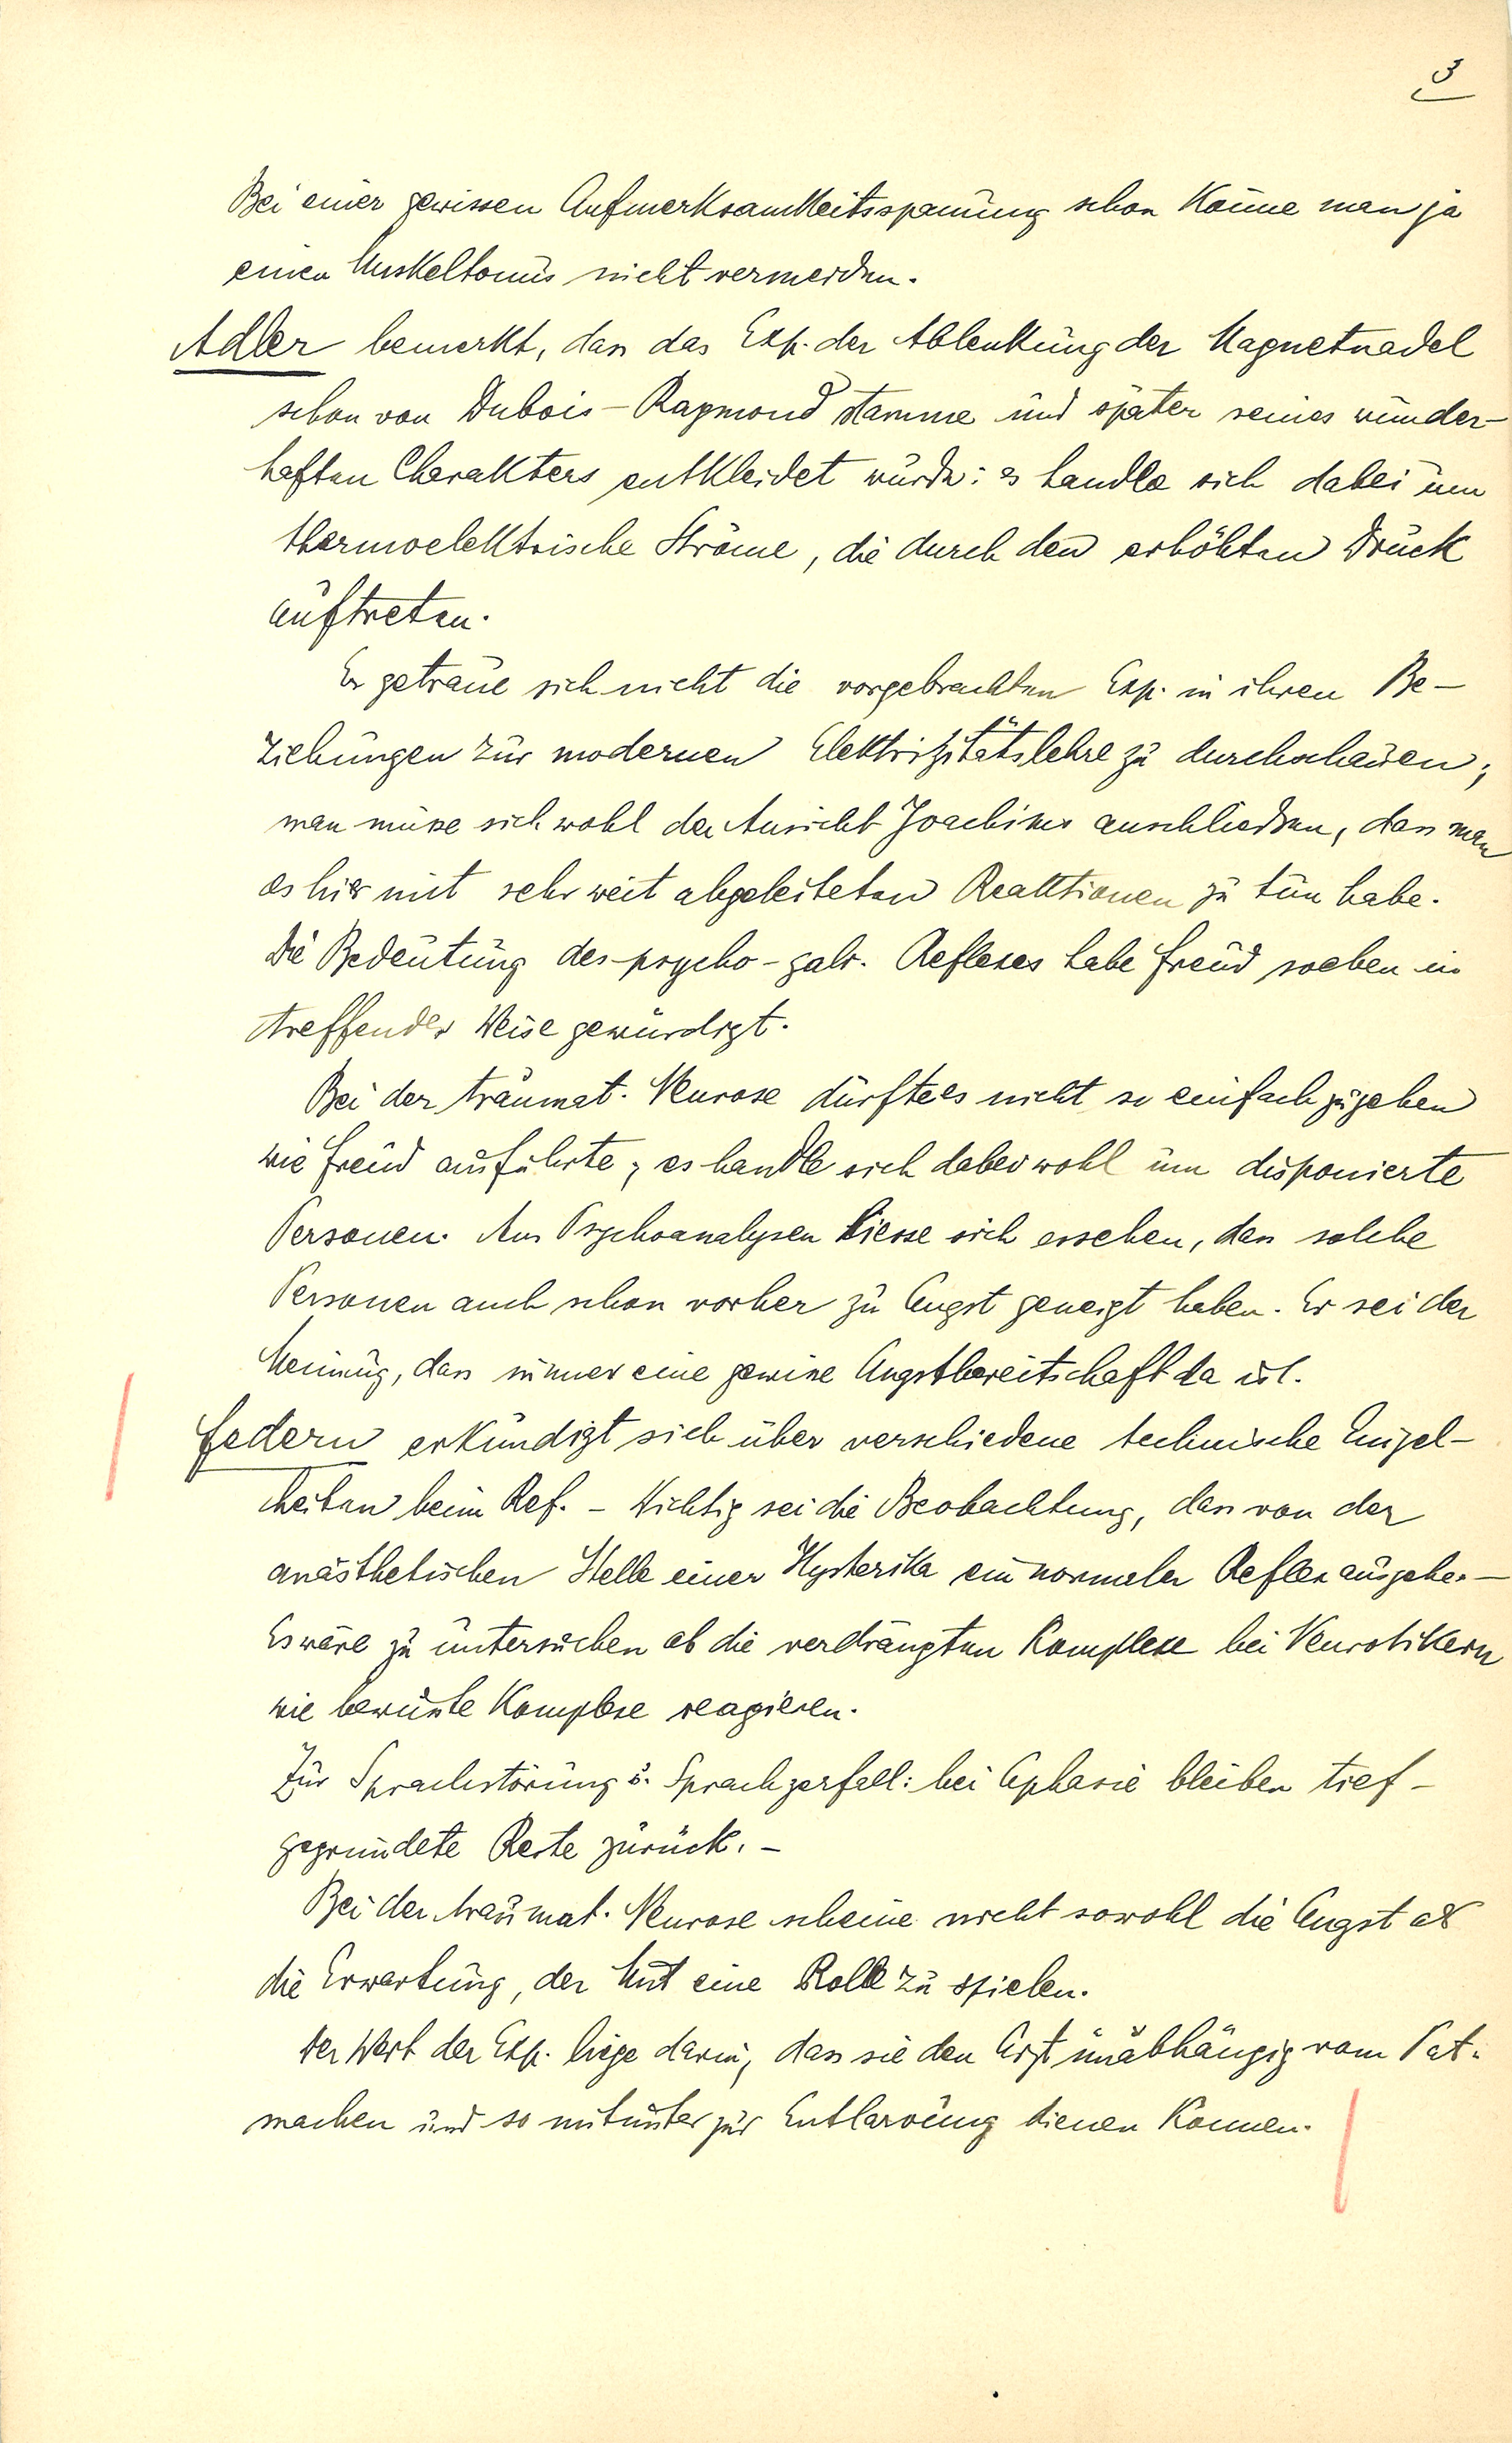 3
Bei einer gewissen Aufmerksamkeitsspannung schon könne man ja
einen Muskeltonus nicht vermeiden.
Adler bemerkt, dass das Exp. der Ablenkung der Magnetnadel
schon von Dubois-Raymond stamme und später seines wunder-
haften Charakters entkleidet wurde: es handle sich dabei um
thermoelektrische Ströme, die durch den erhöhten Druck
auftreten.
Er getraue sich nicht die vorgebrachten Exp. in ihren Be-
ziehungen zur modernen Elektrizitätslehre zu durchschauen;
man müsse sich wohl der Ansicht Joachims anschliessen, dass man
es hier mit sehr weit abgeleiteten Reaktionen zu tun habe.
Die Bedeutung des psycho-galv. Reflexes habe Freud soeben in
treffender Weise gewürdigt.
Bei der traumat. Neurose dürfte es nicht so einfach zugehen
wie Freud ausführte; es handle sich dabei wohl um disponierte
Personen. Aus Psychoanalysen liesse sich ersehen, dass solche
Personen auch schon vorher zu Angst geneigt haben. Er sei der
Meinung, dass immer eine gewisse Angstbereitschaft da ist.
Federn erkundigt sich über verschiedene technische Einzel-
heiten beim Ref. - Wichtig sei die Beobachtung, dass von der
anästhetischen Stelle einer Hysterika ein normaler Reflex ausgehe. -
Es wäre zu untersuchen ob die verdrängten Komplexe bei Neurotikern
wie bewusste Komplexe reagieren.
Zur Sprachstörung u. Sprachzerfall: bei Aphasie bleiben tief-
gegründete Reste zurück. -
Bei der traumat. Neurose scheine nicht sowohl die Angst als
die Erwartung, der Mut eine Rolle zu spielen.
Der Wert der Exp. liege darin, dass sie den Arzt unabhängig vom Pat.
machen und so mitunter zur Entlarvung dienen können.